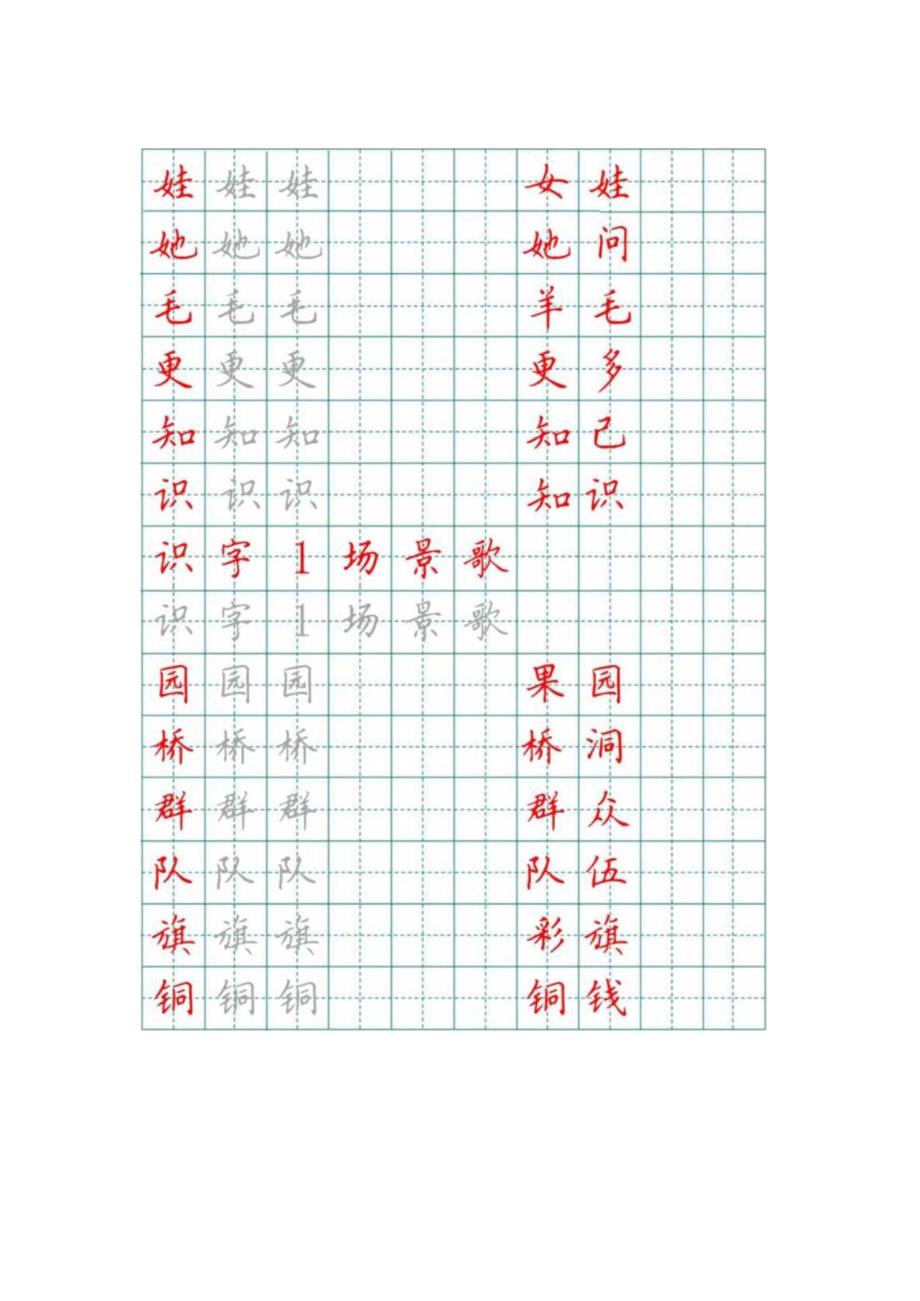 娃 娃 娃 女 娃
她 她 她 她 问
毛 毛 毛 羊 毛
更 更 更 更 多
知 知 知 知 己
识 识 识 知 识
识 字 1 场 景 歌
识 字 1 场 景 歌
园 园 园 果 园
桥 桥 桥 桥 洞
群 群 群 群 众
队 队 队 队 伍
旗 旗 旗 彩 旗
铜 铜 铜 铜 钱